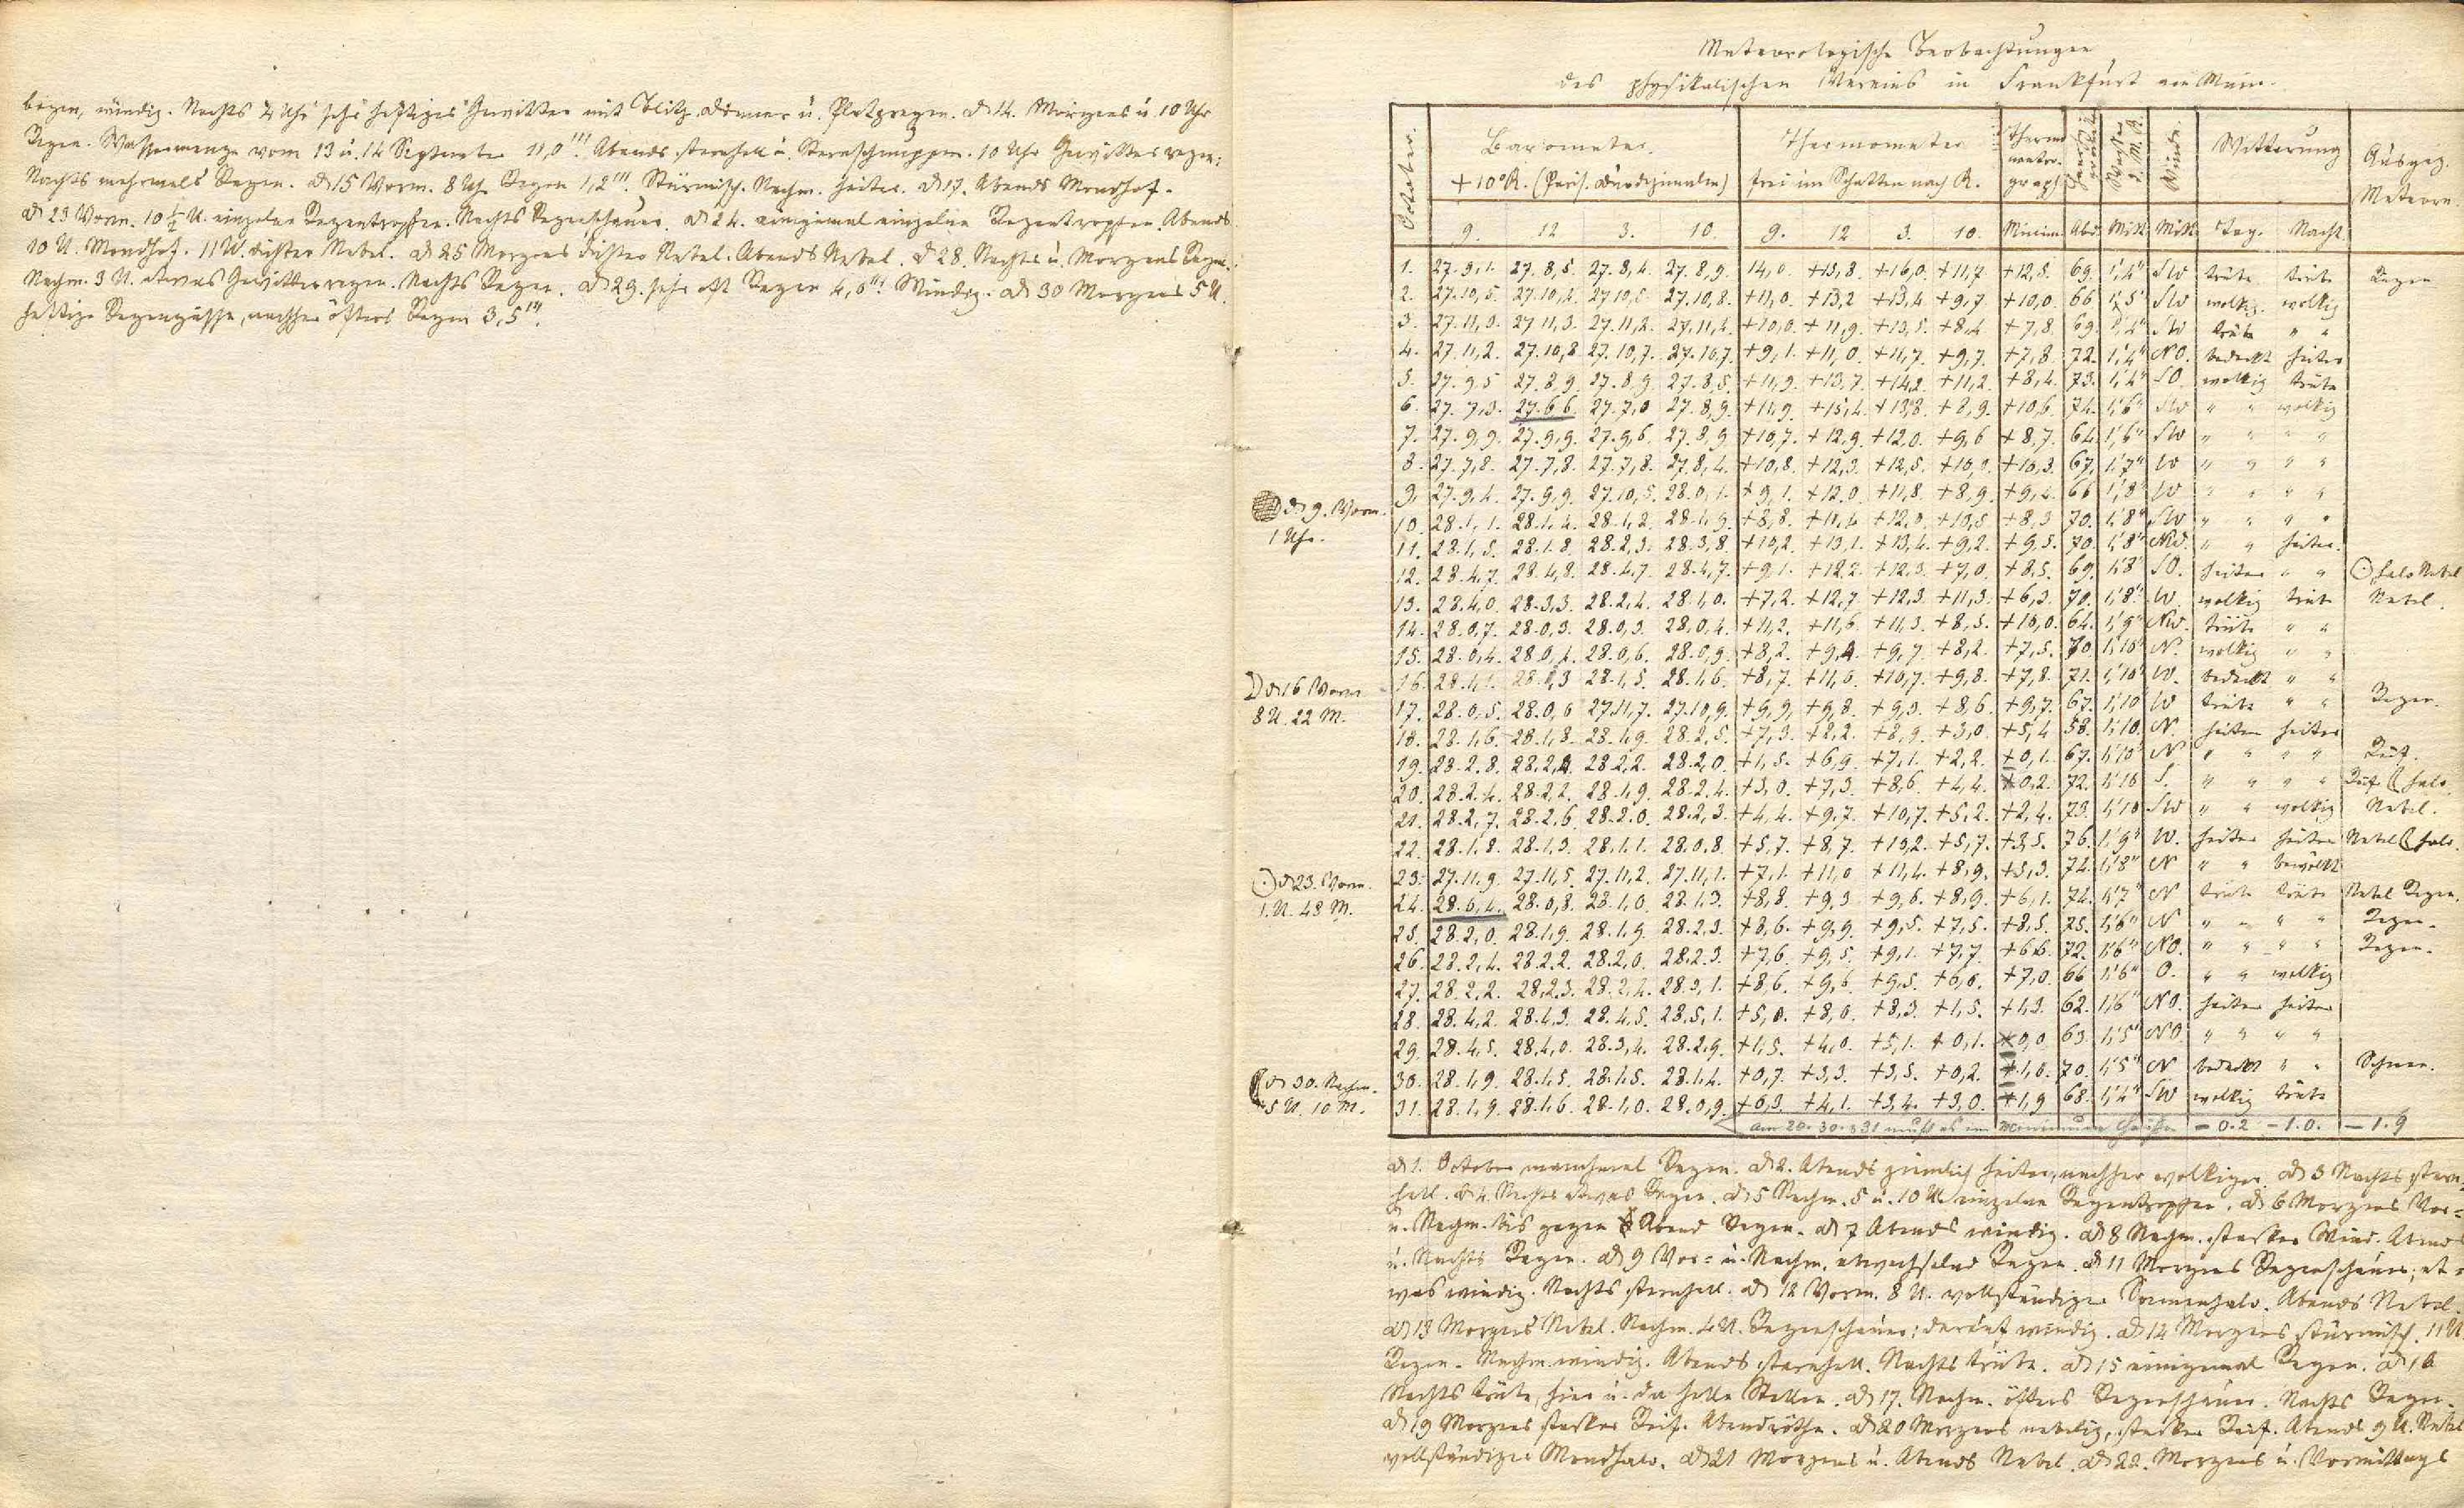 bogen, windig. Nachts 2 Uhr sehr heftiges Gewitter mit Blitz Donner u. Platzregen. D 14. Morgens u 10 Uhr
Regen. Wassermenge vom 13 u. 14 September 11,0'''. Abends sternhell u. Sternschnuppen. 10 Uhr Gewitterregen:
Nachts mehrmals Regen. D 15 Vorm. 8 Uh. Regen 1,2'''. Stürmisch. Nachm. heiter. D 17. Abends Mondhof.
D 23 Vorm. 10 ½ U. einzelne Regentropfen. Nachts Regenschauer. D 24. einigemal einzelne Regentropfen. Abends
10 U. Mondhof. 11 U. dichter Nebel. D 25 Morgens dichter Nebel. Abends Nebel. D 28. Nachts u. Morgens Regen.
Nachm. 3 U. etwas Gewitterregen. Nachts Regen. D 29. sehr oft Regen 4,6'''. Windig. D 30 Morgens 5 U.
heftige Regengüsse, nachher öfters Regen 3,5'''.
Meteorologische Beobachtungen
des physikalischen Vereins in Frankfurt am Main.
October. Barometer. Thermometer Thermometrograph Winde. Witterung Ausgez. Meteore.
+10°R. (Paris. Duodezimalen) frei im Schatten nach R.
9. 12 3. 10. 9. 12 3. 10. Minim. Abd. Mitt. Mitt. Tag. Nacht.
1. 27.9,1. 27.8,5. 27.8,4. 27.8,9. 14,0. +15,8. +16,0. +11,7. +12,5. 69. 1,'4" SW trübe trübe Regen
2. 27.10,5. 27.10,2. 27.10,6 27.10,8. +11,0. +13,2 +13,4 +9,7 +10,0. 66 1,'5" SW wolkig. wolkig
3. 27.11,3. 27.11,3. 27.11,2. 27.11,4. +10,0. +11,9. +13,5. +8,4 +7,8. 69. 1,'4" SW trübe " "
4. 27.11,2. 27.10,8 27.10,7. 27.10,7. +9,1. +11,0. +11,7. +9,7. +7,8. 72. 1,'4" NO. bedeckt heiter
5. 27.9,5 27.8,9. 27.8,9. 27.8,5. +11,9. +13,7. +14,2. +11,2. +8,4. 73. 1,'4" SO. wolkig trübe
6. 27.7,3. 27.6,6. 27.7,0 27.8,9. +11,9. +15,4. +13,8. +8,9. +10,6. 74. 1,'6" SW " " wolkig
7. 27.9,9. 27.9,9. 27.9,6. 27.8,9 +10,7. +12,9. +12,0. +9,6 +8,7. 64. 1,'6" SW " " " "
8. 27.7,8. 27.7,8. 27.7,8. 27.8,4. +10,8. +12,3. +12,5. +10,3. +10,3. 67. 1,'7" W " " " "
D 9. Vorm. 1 Uhr.
9. 27.9,4. 27.9,9. 27.10,5. 28.0,1. +9,1. +12,0. +11,8. +8,9. +9,4. 66 1,'8" W " " " "
10. 28.1,1. 28.1,4. 28.1,2. 28.1,9. +8,8. +11,4 +12,0. +10,5 +8,3 70. 1,'8" SW " " " "
11. 28.1,5. 28.1,8. 28.2,3. 28.3,8. +10,2. +13,1. +13,4. +9,2. +9,5. 70. 1,'8" NW. " " heiter.
12. 28.4,7. 28.4,8. 28.4,7. 28.4,7. +9,1. +12,2. +12,3. +7,0. +8,5. 69. 1,'8" SO. heiter " " ☉ halo Nebel
13. 28.4,0. 28.3,3. 28.2,4. 28.1,0. +7,2. +12,7. +12,3. +11,3. +6,3. 70. 1,'8" W. wolkig trübe Nebel.
14. 28.0,7. 28.0,3. 28.0,3. 28.0,4. +11,2. +11,6. +11,3. +8,5. +10,0. 64. 1,'9" NW. trübe " "
15. 28.0,4. 28.0,4. 28.0,6. 28.0,9. +8,2. +9,4. +9,7 +8,2. +7,5. 70. 1,'10" N. wolkig " "
D 16 Vorm 8 U. 22 M.
16. 28.1,1. 28.1,3 28.1,5. 28.1,6. +8,7. +11,6. +10,7. +9,8. +7,8. 71. 1,'10" W. bedeckt " "
17. 28.0,5. 28.0,6 27.11,7. 27.10,9. +9,9, +9,8. +9,3. +8,6. +9,7. 67. 1,'10 W trübe " " Regen.
18. 28.1,6. 28.1,8. 28.1,9. 28.2,5. +7,3. +8,2. +8,9. +3,0. +5,4 58. 1,'10. N. heiter heiter
19. 28.2,8. 28.2,4. 28.2,2. 28.2,0. +1,5. +6,9. +7,1. +2,2. +0,1. 67. 1,'10" N " " " " Reif.
20. 28.2,4. 28.2,2. 28.1,9. 28.2,4. +3,0. +7,3. +8,6 +4,4. +0,2. 72. 1,'10 S. " " " " Reif ☾ halo.
21. 28.2,7. 28.2,6. 28.2,0. 28.2,3. +4,4. +9,7. +10,7. +5,2. +2,4. 73. 1,'10 SW " " wolkig Nebel.
22. 28.1,8. 28.1,3. 28.1,1. 28.0,8. +5,7. +8,7. +13,2. +5,7. +3,5. 76. 1,'9" W. heiter heiter Nebel ☾ halo.
☉ D 23. Vorm. 1. U. 48 M.
23. 27.11,9. 27.11,5. 27.11,2. 27.11,1. +7,1. +11,0 +11,4. +8,9. +5,3. 74. 1,'8" N " " bewölkt
24. 28.6,4. 28.0,8. 28.1,0. 28.1,3. +8,8. +9,3 +9,6. +8,9. +6,1. 74. 1,'7" N trübe trübe Nebel Regen.
25. 28.2,0. 28.1,9. 28.1,9. 28.2,3. +8,6. +9,9. +9,5. +7,5. +8,5. 75. 1,'6" N " " " " Regen.
26. 28.2,4. 28.2,2. 28.2,0. 28.2,3. +7,6. +9,5. +9,1. +7,7. +6,6. 72. 1,'6" NO. " " " " Regen.
27. 28.2,2. 28.2,3. 28.2,4. 28.3,1. +8,6. +9,6. +9,5. +6,0. +7,0. 66 1,'6" O. " " wolkig
28. 28.4,2. 28.4,3. 28.4,5. 28.5,1. +5,0. +8,0. +8,3. +1,5. +1,3. 62. 1,'6" NO. heiter heiter
29. 28.4,5. 28.4,0. 28.3,4. 28.2,9. +1,5. +4,0. +5,1. +0,1. 0,0 63. 1,'5" NO. " " " "
( D 30. Nachm. 5 U. 10 M.
30. 28.1,9. 28.1,5. 28.1,5. 28.1,4. +0,7. +3,3. +3,5. +0,2. 1,0. 70. 1,'5" N bedeckt " " Schnee.
31. 28.1,9. 28.1,6. 28.1,0. 28.0,9. +0,3. +4,1. +3,4. +3,0. 1,9 68. 1,'4" SW wolkig trübe
am 20. 30. & 31 muß es im Minimum heißen - 0.2 - 1.0. - 1.9
D 1. October manchmal Regen. D 2. Abends ziemlich heiter, nachher wolkiger. D 3 Nachts stern-
hell. D 4. Nachts etwas Regen. D 5 Nachm. 5 u. 10 U. einzelne Regentropfen. D 6 Morgens Vor-
u. Nachm. bis gegen Abend Regen. D 7 Abends windig. D 8 Nachm. starker Wind. Abends
u. Nachts Regen. D 9 Vor- u. Nachm. abwechselnd Regen. D 11 Morgens Regenschauer; et-
was windig. Nachts sternhell. D 12 Vorm. 8 U. vollständiger Sonnenhalo. Abends Nebel.
D 13 Morgens Nebel. Nachm. 4 U. Regenschauer; darauf windig. D 14 Morgens stürmisch. 11 U
Regen. Nachm. windig. Abends sternhell. Nachts trübe. D 15 einigemal Regen. D 16
Nachts trübe, hier u. da helle Stellen. D 17. Nachm. öfters Regenschauer. Nachts Regen.
D 19 Morgens starker Reif. Abendröthe. D 20 Morgens nebelig, starker Reif. Abends 9 U. Nebel
vollständiger Mondhalo. D 21 Morgens u. Abends Nebel. D 22. Morgens u. Vormittags